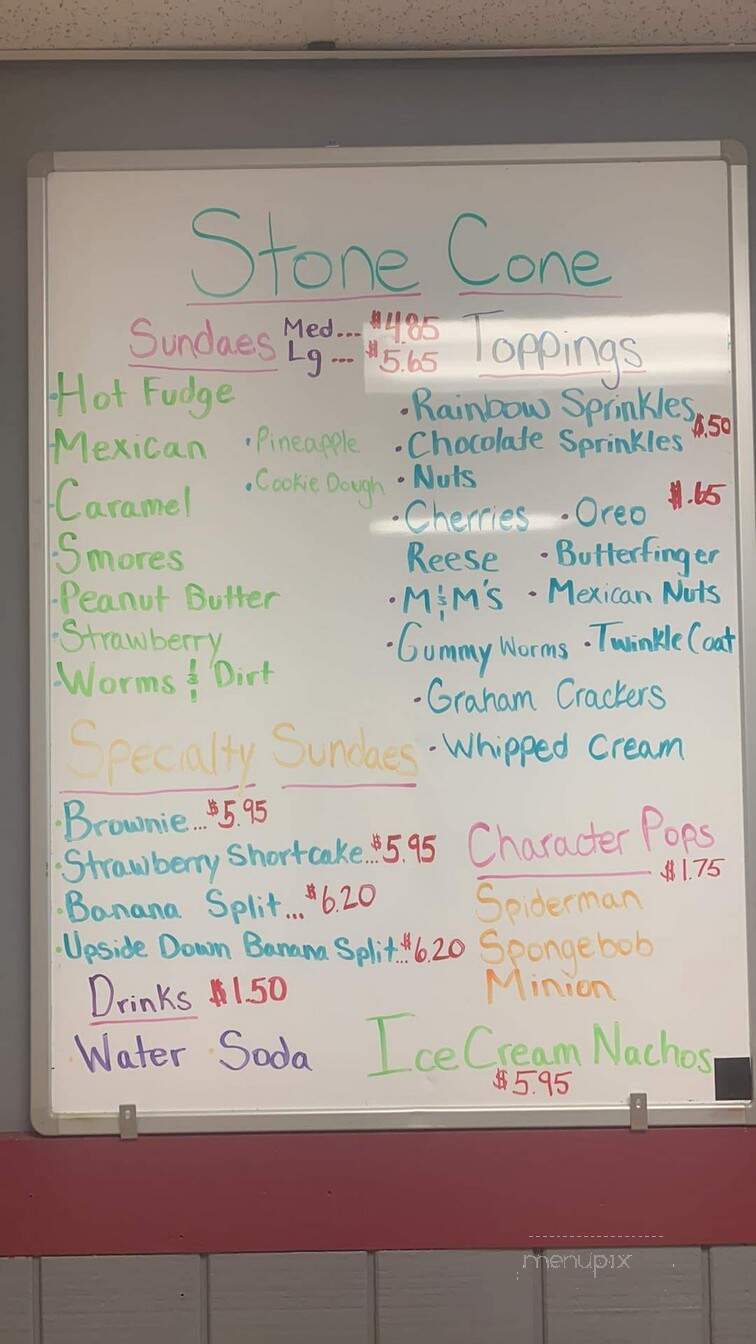 Stone Cone
Sundaes Med... $4.85
Lg --- $5.65
·Hot Fudge
·Mexican ·Pineapple
·Caramel ·Cookie Dough
·Smores
·Peanut Butter
·Strawberry
·Worms & Dirt
Toppings
·Rainbow Sprinkles
·Chocolate Sprinkles $.50
·Nuts
$.65
·Cherries ·Oreo
Reese ·Butterfinger
·M&M's ·Mexican Nuts
·Gummy Worms ·Twinkle Coat
·Graham Crackers
·Whipped Cream
Specialty Sundaes
·Brownie...$5.95
·Strawberry Shortcake...$5.95
·Banana Split...$6.20
·Upside Down Banana Split...$6.20
Character Pops
$1.75
Spiderman
Spongebob
Minion
Drinks $1.50
·Water ·Soda
Ice Cream Nachos
$5.95
menupix